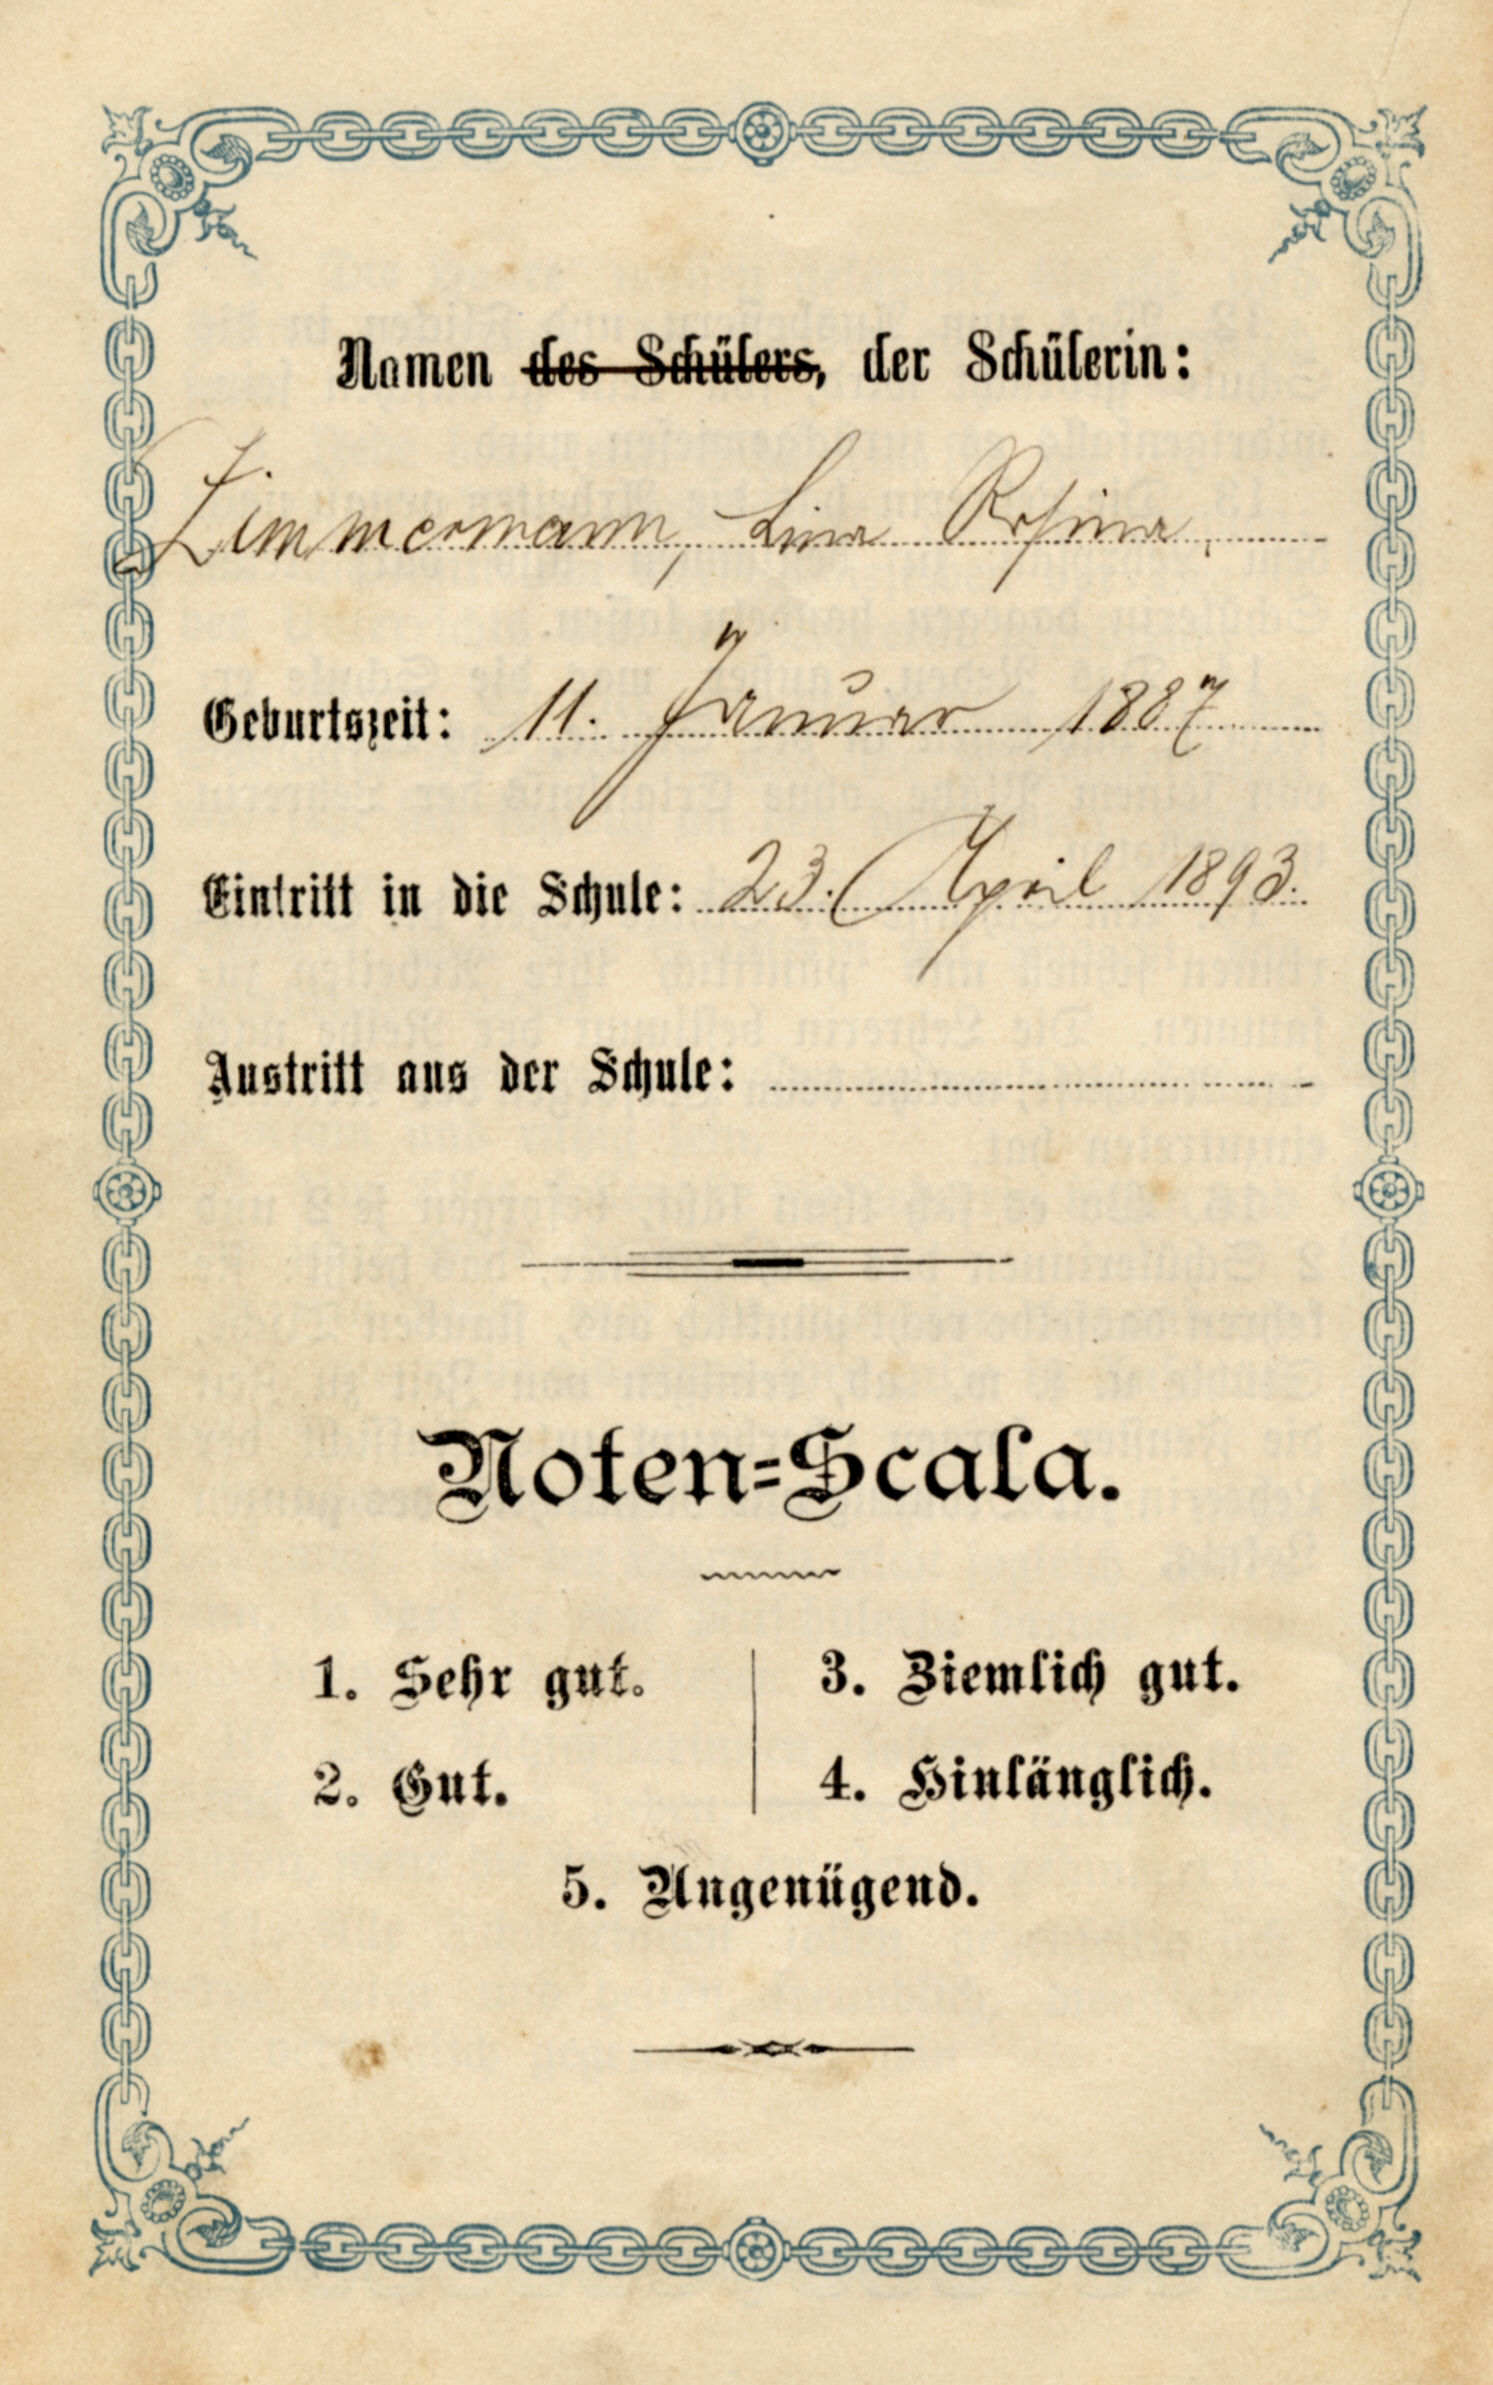 Namen des Schülers, der Schülerin:
Zimmermann, Lina Rosina.
Geburtszeit: 11. Januar 1887
Eintritt in die Schule: 23. April 1893.
Austritt aus der Schule:
Noten=Scala.
1. Sehr gut.
2. Gut.
3. Ziemlich gut.
4. Hinlänglich.
5. Ungenügend.